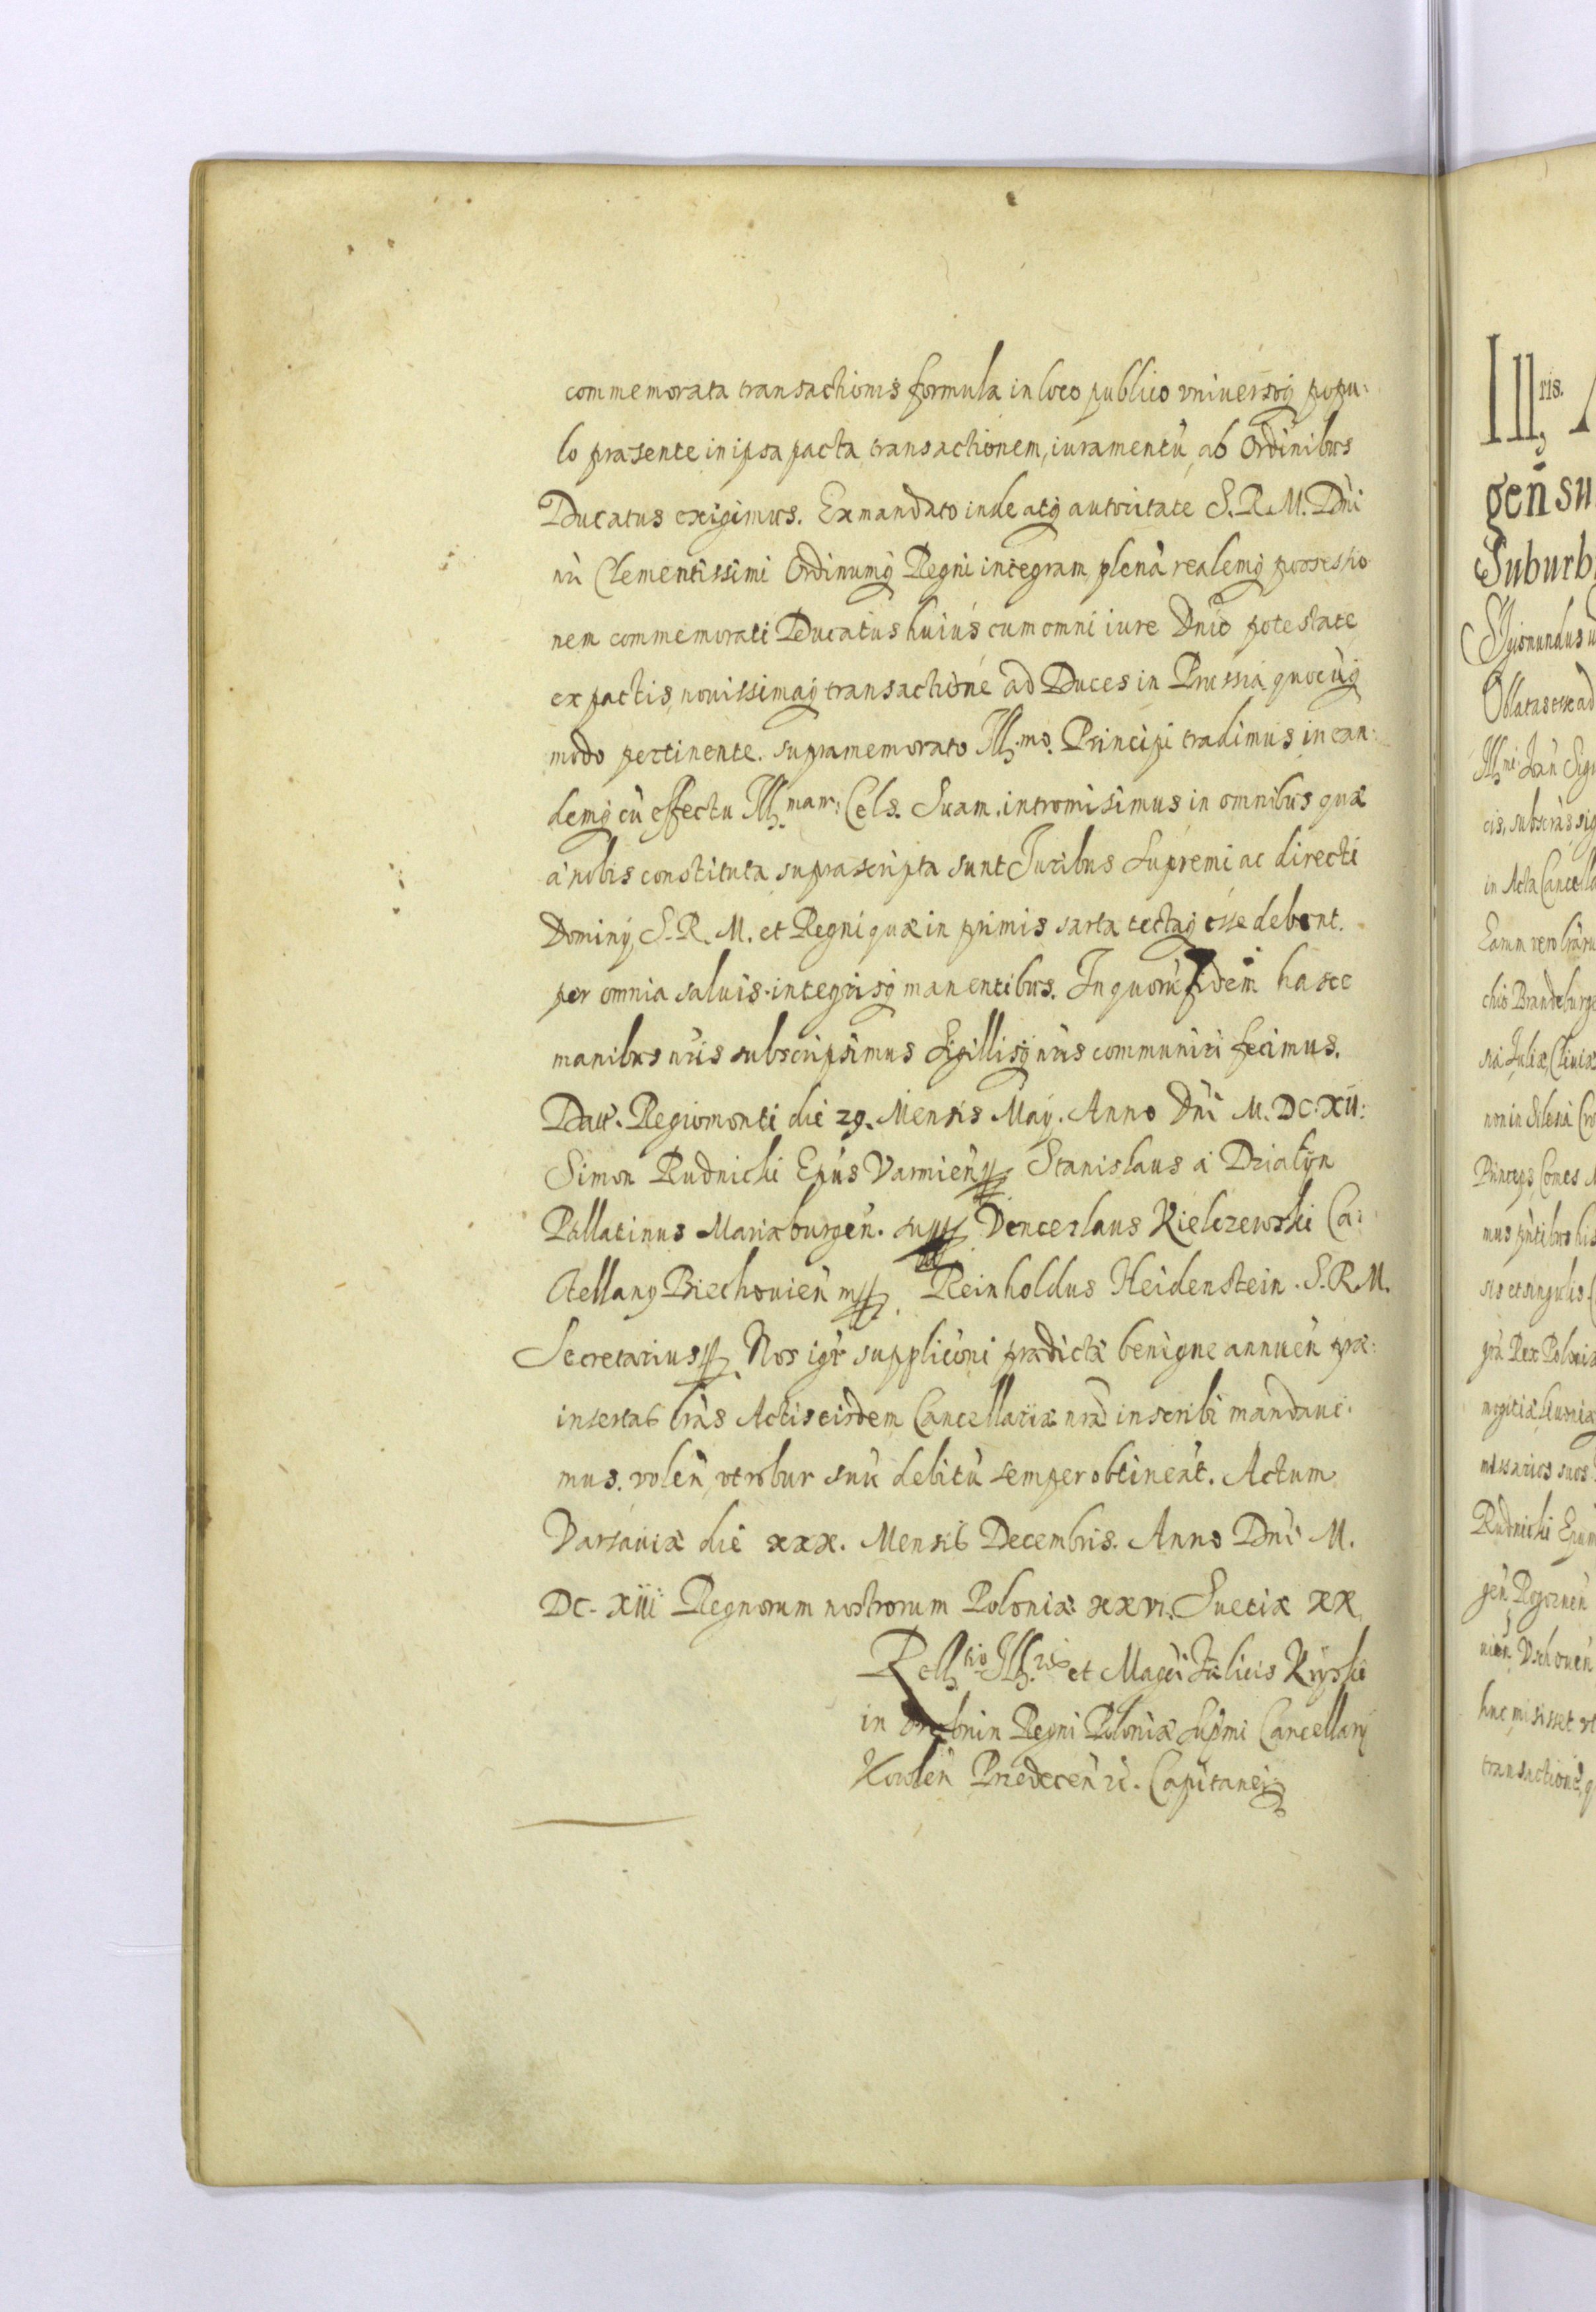 commemorata transactionis formula in loco publico vniuersoq popu:
lo præsente in ipsa pacta, transactionem, iuramentū, ab Ordinibus
Ducatus exigimus. Ex mandato inde atq autoritate S. R. M. Dñi
nři Clementissimi Ordinumq Regni integram plenā realemq possessio
nem commemorati Ducatus huius cum omni iure Dñio potestate
ex pactis, nouissimaq transactione ad Duces in Prussia quocūq
modo pertinente. supramemorato Ill.mo. Principi tradimus in ean:
demq cū effectu Ill.mam: Cels. Suam. intromisimus in omnibus quæ
à nobis constituta suprascripta sunt Juribus Supremi ac directi
Dominij S. R. M. et Regni quæ in primis sarta tectaq esse debent.
per omnia saluis integrisq manentibus. In quorū fidem hasce
manibus nr̄is subscripsimus Sigillisq nr̄is communiri fecimus.
Datt. Regiomonti die 29. Mensis Maij. Anno Dñi M. DC. XII:
Simon Rudnicki Epūs Varmien̄ Stanislaus à Dzialÿn
Pallatinus Mariæburgen̄. Venceslaus Kielczewski Ca:
stellanq Biechouien̄ mp. Reinholdus Heidenstein. S. R. M.
Secretarius Nos igr̄ supplicōni prædictæ benigne annuen̄ præ:
insertas lr̄as Actis eisdem Cancellariæ nr̄æ inscribi mandaui:
mus. volen̄, vt robur suū debitū semper obtineāt. Actum
Varsauiæ die xxx. Mensis Decembris. Anno Dñi M.
DC. XIII Regnorum nostrorum Poloniæ xxvi. Suetiæ XX.
Rel.tio Ill.ris et Magci Fælicis Krÿski
in Drobnin Regni Poloniæ Supmi Cancellarij
Kowlen̄ Capitanei
Ill.ris.
gen̄ su
Suburb
Oblatas esse ad
in Acta Cancella
Earum vero lr̄aru
chio Brandeburge
sia Juliæ, Cliuiæ
non in Silesia Cro
Princeps, Comes
sis et singulis
gr̄a Rex Poloniæ
mogitiæ Liuoniæ
missarios suos
Rudnicki Epum
huc misisset vt
transactionē, q